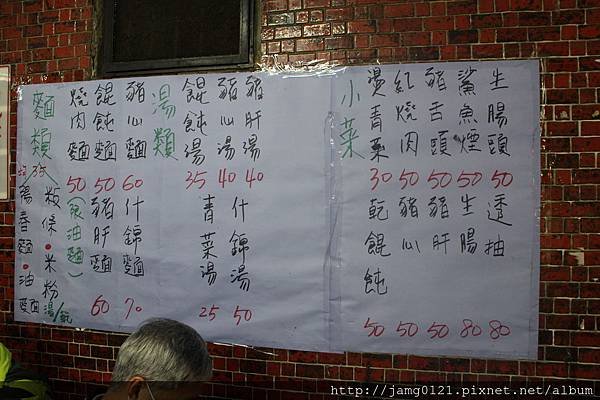 麵類
燒肉麵 50
餛飩麵 50
豬心麵 60
(乾油麵)
豬肝麵 60
什錦麵 70
陽春麵・油麵
粄條・米粉
湯/乾
湯類
餛飩湯 35
豬心湯 40
豬肝湯 40
青菜湯 25
什錦湯 50
小菜
燙青菜 30
紅燒肉 50
豬舌頭 50
鯊魚煙 50
生腸頭 50
乾餛飩 50
豬心 50
豬肝 50
生腸 80
透抽 80
http://jamg0121.pixnet.net/album